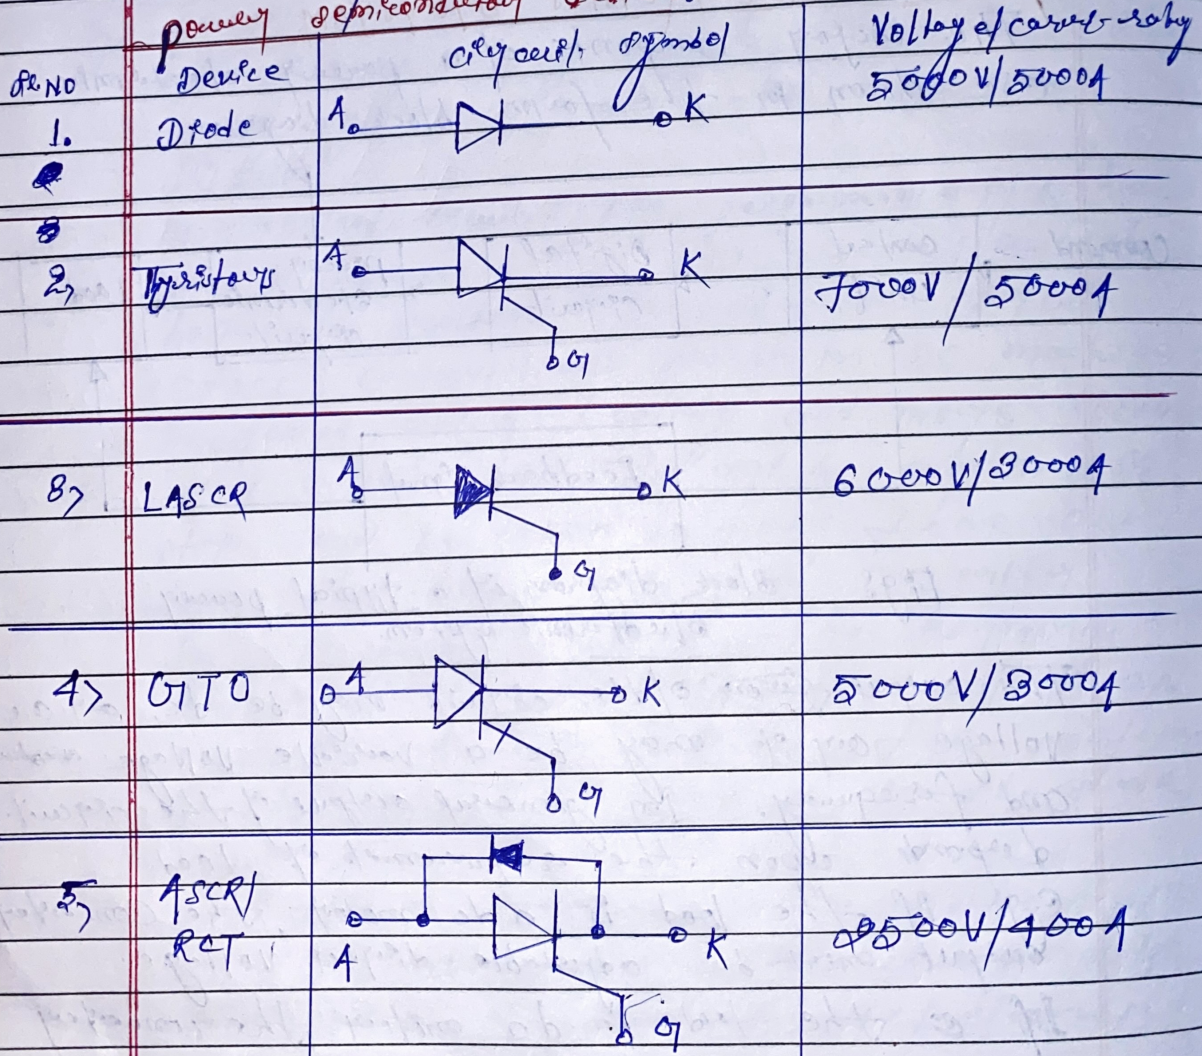 Power semiconductor
Sl NO Device Circuit symbol Voltage/current rating
1. Diode A K 5000V/5000A
2, Thyristors A K G 7000V/5000A
3> LASCR A K G 6000V/3000A
4> GTO A K G 5000V/3000A
5, ASCR/ RCT A K G 2500V/400A